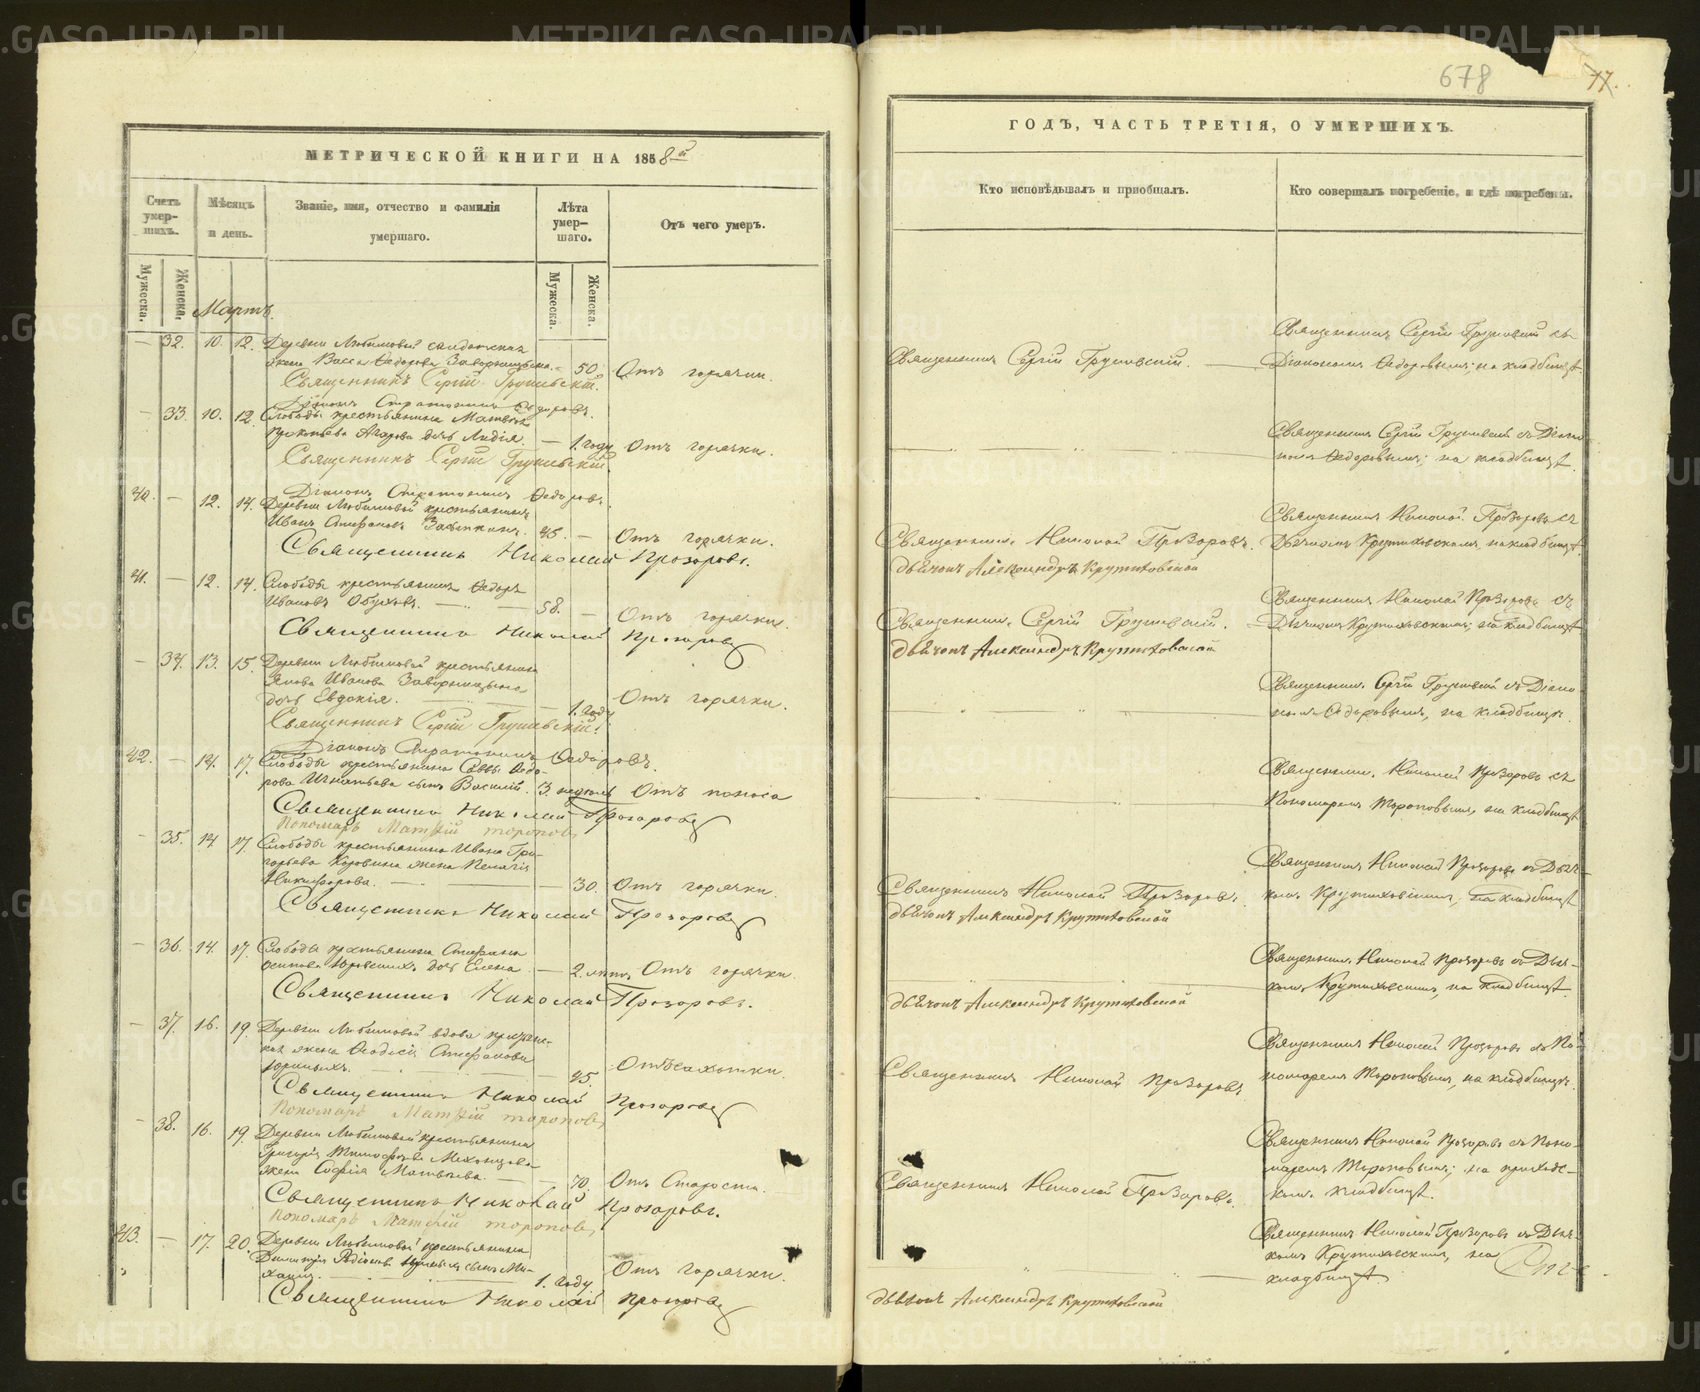 МЕТРИЧЕСКОЙ КНИГИ НА 1858й
Счетъ умер-шихъ.
Мужеска. Женска.
Мѣсяцъ и день.
Званіе, имя, отчество и фамилія умершаго.
Лѣта умер-шаго.
Мужеска. Женска.
Отъ чего умеръ.
Мартъ.
— 32. 10. 12. Деревни Любимовой солдатская
жена Васса Ѳедорова 50. Отъ горячки.
Священникъ Сергій Грушевскій.
Діаконъ Ѳедоровъ.
— 33. 10. 12. Слободы крестьянина Матвея
Прокопьева дочь Лидія. — 1. году Отъ горячки.
Священникъ Сергій Грушевскій.
Діаконъ Ѳедоровъ.
40. — 12. 14. Деревни Любимовой крестьянинъ
Иванъ Стефановъ 45. — Отъ горячки.
Священникъ Николай Прозоровъ.
41. — 12. 14. Слободы крестьянинъ Ѳедоръ
Ивановъ Обуховъ. — 58. — Отъ горячки.
Священникъ Николай Прозоровъ
— 34. 13. 15. Деревни Любимовой крестьянина
Якова Иванова
дочь Евдокія. — 1. году Отъ горячки.
Священникъ Сергій Грушевскій.
Діаконъ Ѳедоровъ.
42. — 14. 17. Слободы крестьянина Саввы Ѳедо-
рова Игнатьева сынъ Василій. 3. недѣль Отъ поноса
Священникъ Николай Прозоровъ
Пономарь Матѳій Тороповъ
— 35. 14 17 Слободы крестьянина Ивана Гри-
горьева Коровина жена Пелагія
Никифорова. — 30. Отъ горячки.
Священникъ Николай Прозоровъ
— 36. 14. 17. Слободы крестьянина Стефана
Осипова дочь Елена. — 2 лѣтъ Отъ горячки.
Священникъ Николай Прозоровъ.
— 37. 16. 19. Деревни Любимовой вдова крестьянс-
кая жена Ѳеодосія Стефанова
45. Отъ сахотки.
Священникъ Николай Прозоровъ
Пономарь Матѳій Тороповъ
— 38. 16. 19. Деревни Любимовой крестьянина
Григорія Тимофеева
жена Софія Матвѣева. — 70. Отъ Старости.
Священникъ Николай Прозоровъ.
Пономарь Матѳій Тороповъ
43. — 17. 20. Деревни Любимовой крестьянина
Димитрія Родіонова сынъ Ми-
хаилъ. 1. году Отъ горячки.
Священникъ Николай Прозоровъ
678
77.
ГОДЪ, ЧАСТЬ ТРЕТІЯ, О УМЕРШИХЪ.
Кто исповѣдывалъ и пріобщалъ.
Кто совершалъ погребеніе, и гдѣ погребены.
Священникъ Сергій Грушевскій съ
Священникъ Сергій Грушевскій. — Діакономъ Ѳедоровымъ; на кладбищѣ.
Священникъ Сергій Грушевскій съ Діако-
номъ Ѳедоровымъ; на кладбищѣ.
Священникъ Николай Прозоровъ съ
Священникъ Николай Прозоровъ. Дьячкомъ Крутиховскимъ на кладбищѣ.
дьячокъ Александръ Крутиховской
Священникъ Николай Прозоровъ съ
Священникъ Сергій Грушевскій. — Дьячкомъ Крутиховскимъ; на кладбищѣ
дьячокъ Александръ Крутиховской
Священникъ Сергій Грушевскій съ Діако-
номъ Ѳедоровымъ, на кладбищѣ.
Священникъ Николай Прозоровъ съ
Пономаремъ Тороповымъ, на кладбищѣ
Священникъ Николай Прозоровъ съ Дьяч-
Священникъ Николай Прозоровъ. комъ Крутиховскимъ, на кладбищѣ
дьячокъ Александръ Крутиховской
Священникъ Николай Прозоровъ съ Дьяч-
комъ Крутиховскимъ, на кладбищѣ.
дьячокъ Александръ Крутиховской
Священникъ Николай Прозоровъ съ По-
Священникъ Николай Прозоровъ номаремъ Тороповымъ, на кладбищѣ.
Священникъ Николай Прозоровъ съ Поно-
маремъ Тороповымъ; на приходс-
Священникъ Николай Прозоровъ. комъ кладбищѣ.
Священникъ Николай Прозоровъ съ Дьяч-
комъ Крутиховскимъ, на
кладбищѣ
дьячокъ Александръ Крутиховской
METRIKI.GASO-URAL.RU